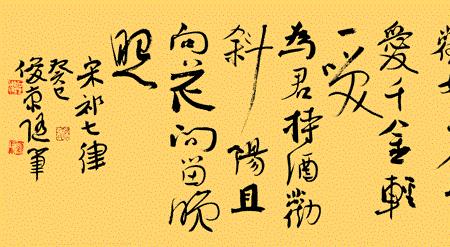 愛千金輕
一笑
為君持酒勸
斜陽且
向花間留晚
照
宋祁七律
癸巳
俊京随筆